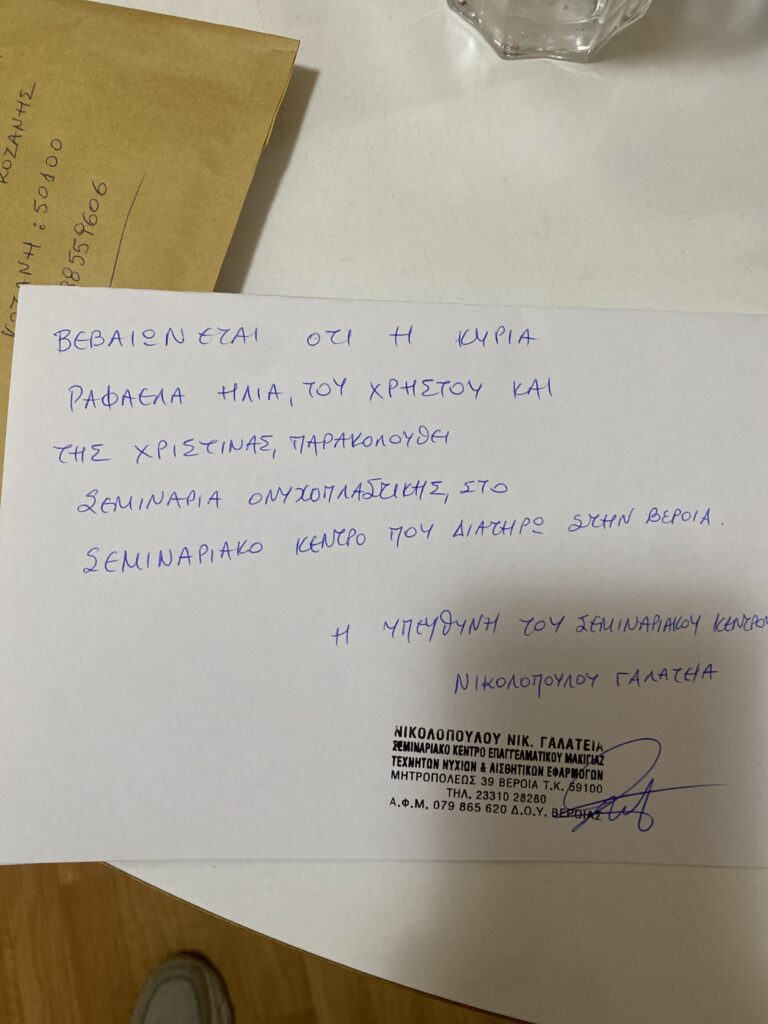 ΚΟΖΑΝΗΣ
ΚΟΖΑΝΗ : 50100
98559606
ΒΕΒΑΙΩΝΕΤΑΙ ΟΤΙ Η ΚΥΡΙΑ
ΡΑΦΑΕΛΑ ΗΛΙΑ, ΤΟΥ ΧΡΗΣΤΟΥ ΚΑΙ
ΤΗΣ ΧΡΙΣΤΙΝΑΣ, ΠΑΡΑΚΟΛΟΥΘΕΙ
ΣΕΜΙΝΑΡΙΑ ΟΝΥΧΟΠΛΑΣΤΙΚΗΣ, ΣΤΟ
ΣΕΜΙΝΑΡΙΑΚΟ ΚΕΝΤΡΟ ΠΟΥ ΔΙΑΤΗΡΩ ΣΤΗΝ ΒΕΡΟΙΑ.
Η ΥΠΕΥΘΥΝΗ ΤΟΥ ΣΕΜΙΝΑΡΙΑΚΟΥ ΚΕΝΤΡΟΥ
ΝΙΚΟΛΟΠΟΥΛΟΥ ΓΑΛΑΤΕΙΑ
ΝΙΚΟΛΟΠΟΥΛΟΥ ΝΙΚ. ΓΑΛΑΤΕΙΑ
ΣΕΜΙΝΑΡΙΑΚΟ ΚΕΝΤΡΟ ΕΠΑΓΓΕΛΜΑΤΙΚΟΥ ΜΑΚΙΓΙΑΖ
ΤΕΧΝΗΤΩΝ ΝΥΧΙΩΝ & ΑΙΣΘΗΤΙΚΩΝ ΕΦΑΡΜΟΓΩΝ
ΜΗΤΡΟΠΟΛΕΩΣ 39 ΒΕΡΟΙΑ Τ.Κ. 59100
ΤΗΛ. 23310 28280
Α.Φ.Μ. 079 865 620 Δ.Ο.Υ. ΒΕΡΟΙΑΣ